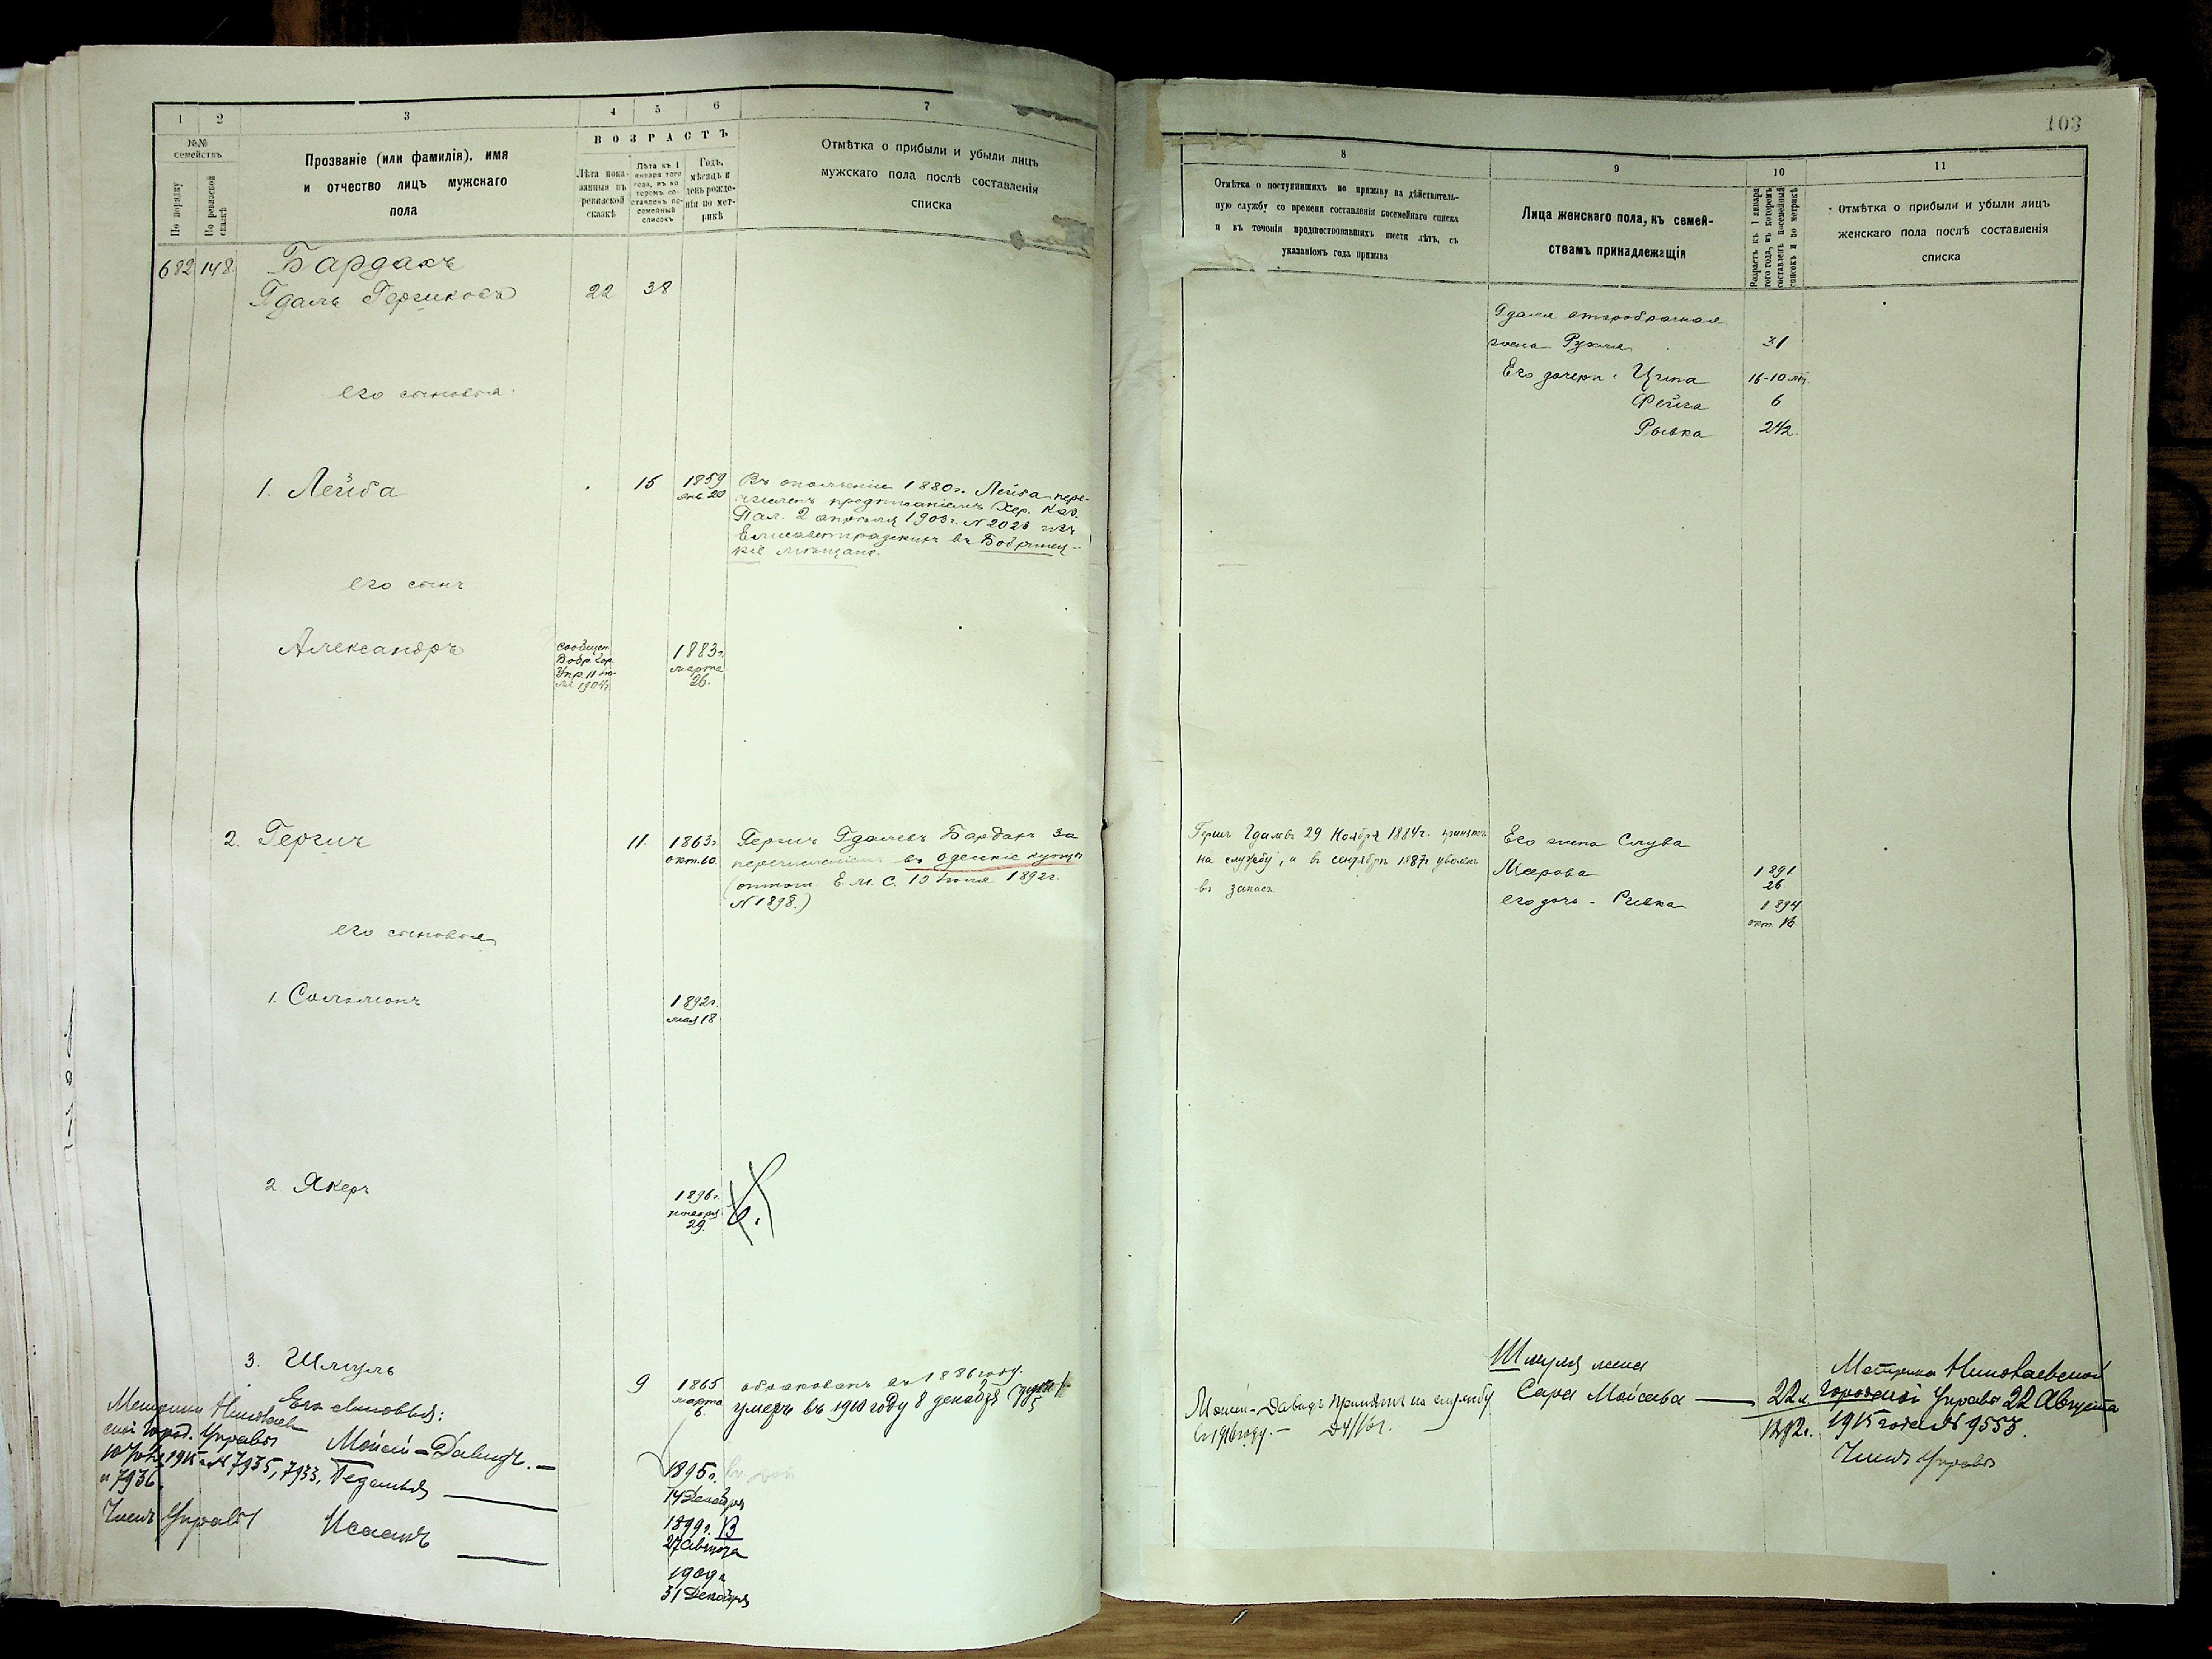 1 2 3 4 5 6 7
№№ семействъ
По порядку
По ревизской сказкѣ
Прозваніе (или фамилія), имя
и отчество лицъ мужскаго
пола
ВОЗРАСТЪ
Лѣта пока-
занныя въ
ревизской
сказкѣ
Лѣта къ 1
января того
года, въ ко-
торомъ со-
ставленъ по-
семейный
списокъ
Годъ,
мѣсяцъ и
день рожде-
нія по мет-
рикѣ
Отмѣтка о прибыли и убыли лицъ
мужскаго пола послѣ составленія
списка
682 148 Бардакъ
Гдаль Гершковъ 22 38
его сыновья
1. Лейба 15 1859
янв. 20
Въ ополченіе 1880г. Лейба пере-
численъ предписаніемъ Хер. Каз.
Пал. 2 апрѣля 1903г. № 2023 изъ
Елисаветградскихъ въ Бобринец-
кіе мѣщане.
его сынъ
Александръ
Сообщен.
Бобр. Гор.
Упр. 11
1904г.
1883г.
марта
26.
2. Гершъ 11 1863г.
окт. 10.
Гершъ Гдалевъ Бардакъ за
перечисленіемъ въ одесскіе купцы
Е. М. С. 1892г.
№ 1898.)
его сыновья
1. Соломонъ 1892г.
мая 18
2. Якеръ 1896г.
ноября
29.
3. Шмуль 9 1865
марта
6
обракованъ въ 1886 году.
умеръ въ 1910 году 8 декабря
Его сыновья:
Метрики Николаев
ской Город. Управы
1915 г. № 7935, 7933,
и 7936.
Членъ Управы
Мойсей-Давидъ. —
Гедалья
Исаакъ
1895г.
14 Декабря
1899г. В
27 Августа
1909г.
31 Декабря
103
8 9 10 11
Отмѣтка о поступившихъ по призыву на дѣйствитель-
ную службу со времени составленія посемейнаго списка
и въ теченіи предшествовавшихъ шести лѣтъ, съ
указаніемъ года призыва
Лица женскаго пола, къ семей-
ствамъ принадлежащія
Возрастъ къ 1 января
того года, въ которомъ
составленъ посемейный
списокъ и по метрикѣ
Отмѣтка о прибыли и убыли лицъ
женскаго пола послѣ составленія
списка
Гдаля второбрачная
жена Рухля 31
Его дочери: Ципа 16-10
Фейга 6
Рывка 2½
Гершъ Гдалевъ 29 Ноября 1884г. принятъ
на службу, а въ сентябрѣ 1887г уволенъ
въ запасъ
Его жена Слува
Меерова 1891
26
его дочь - Ривка 1894
окт.
Шмуля жена
Сара Мойсеева — 22 л.
1892г.
Мойсей-Давидъ принятъ на службу
въ 1916 году. —
Метрика Николаевской
Городской Управы 22 Августа
1915 года № 9553.
Членъ Управы